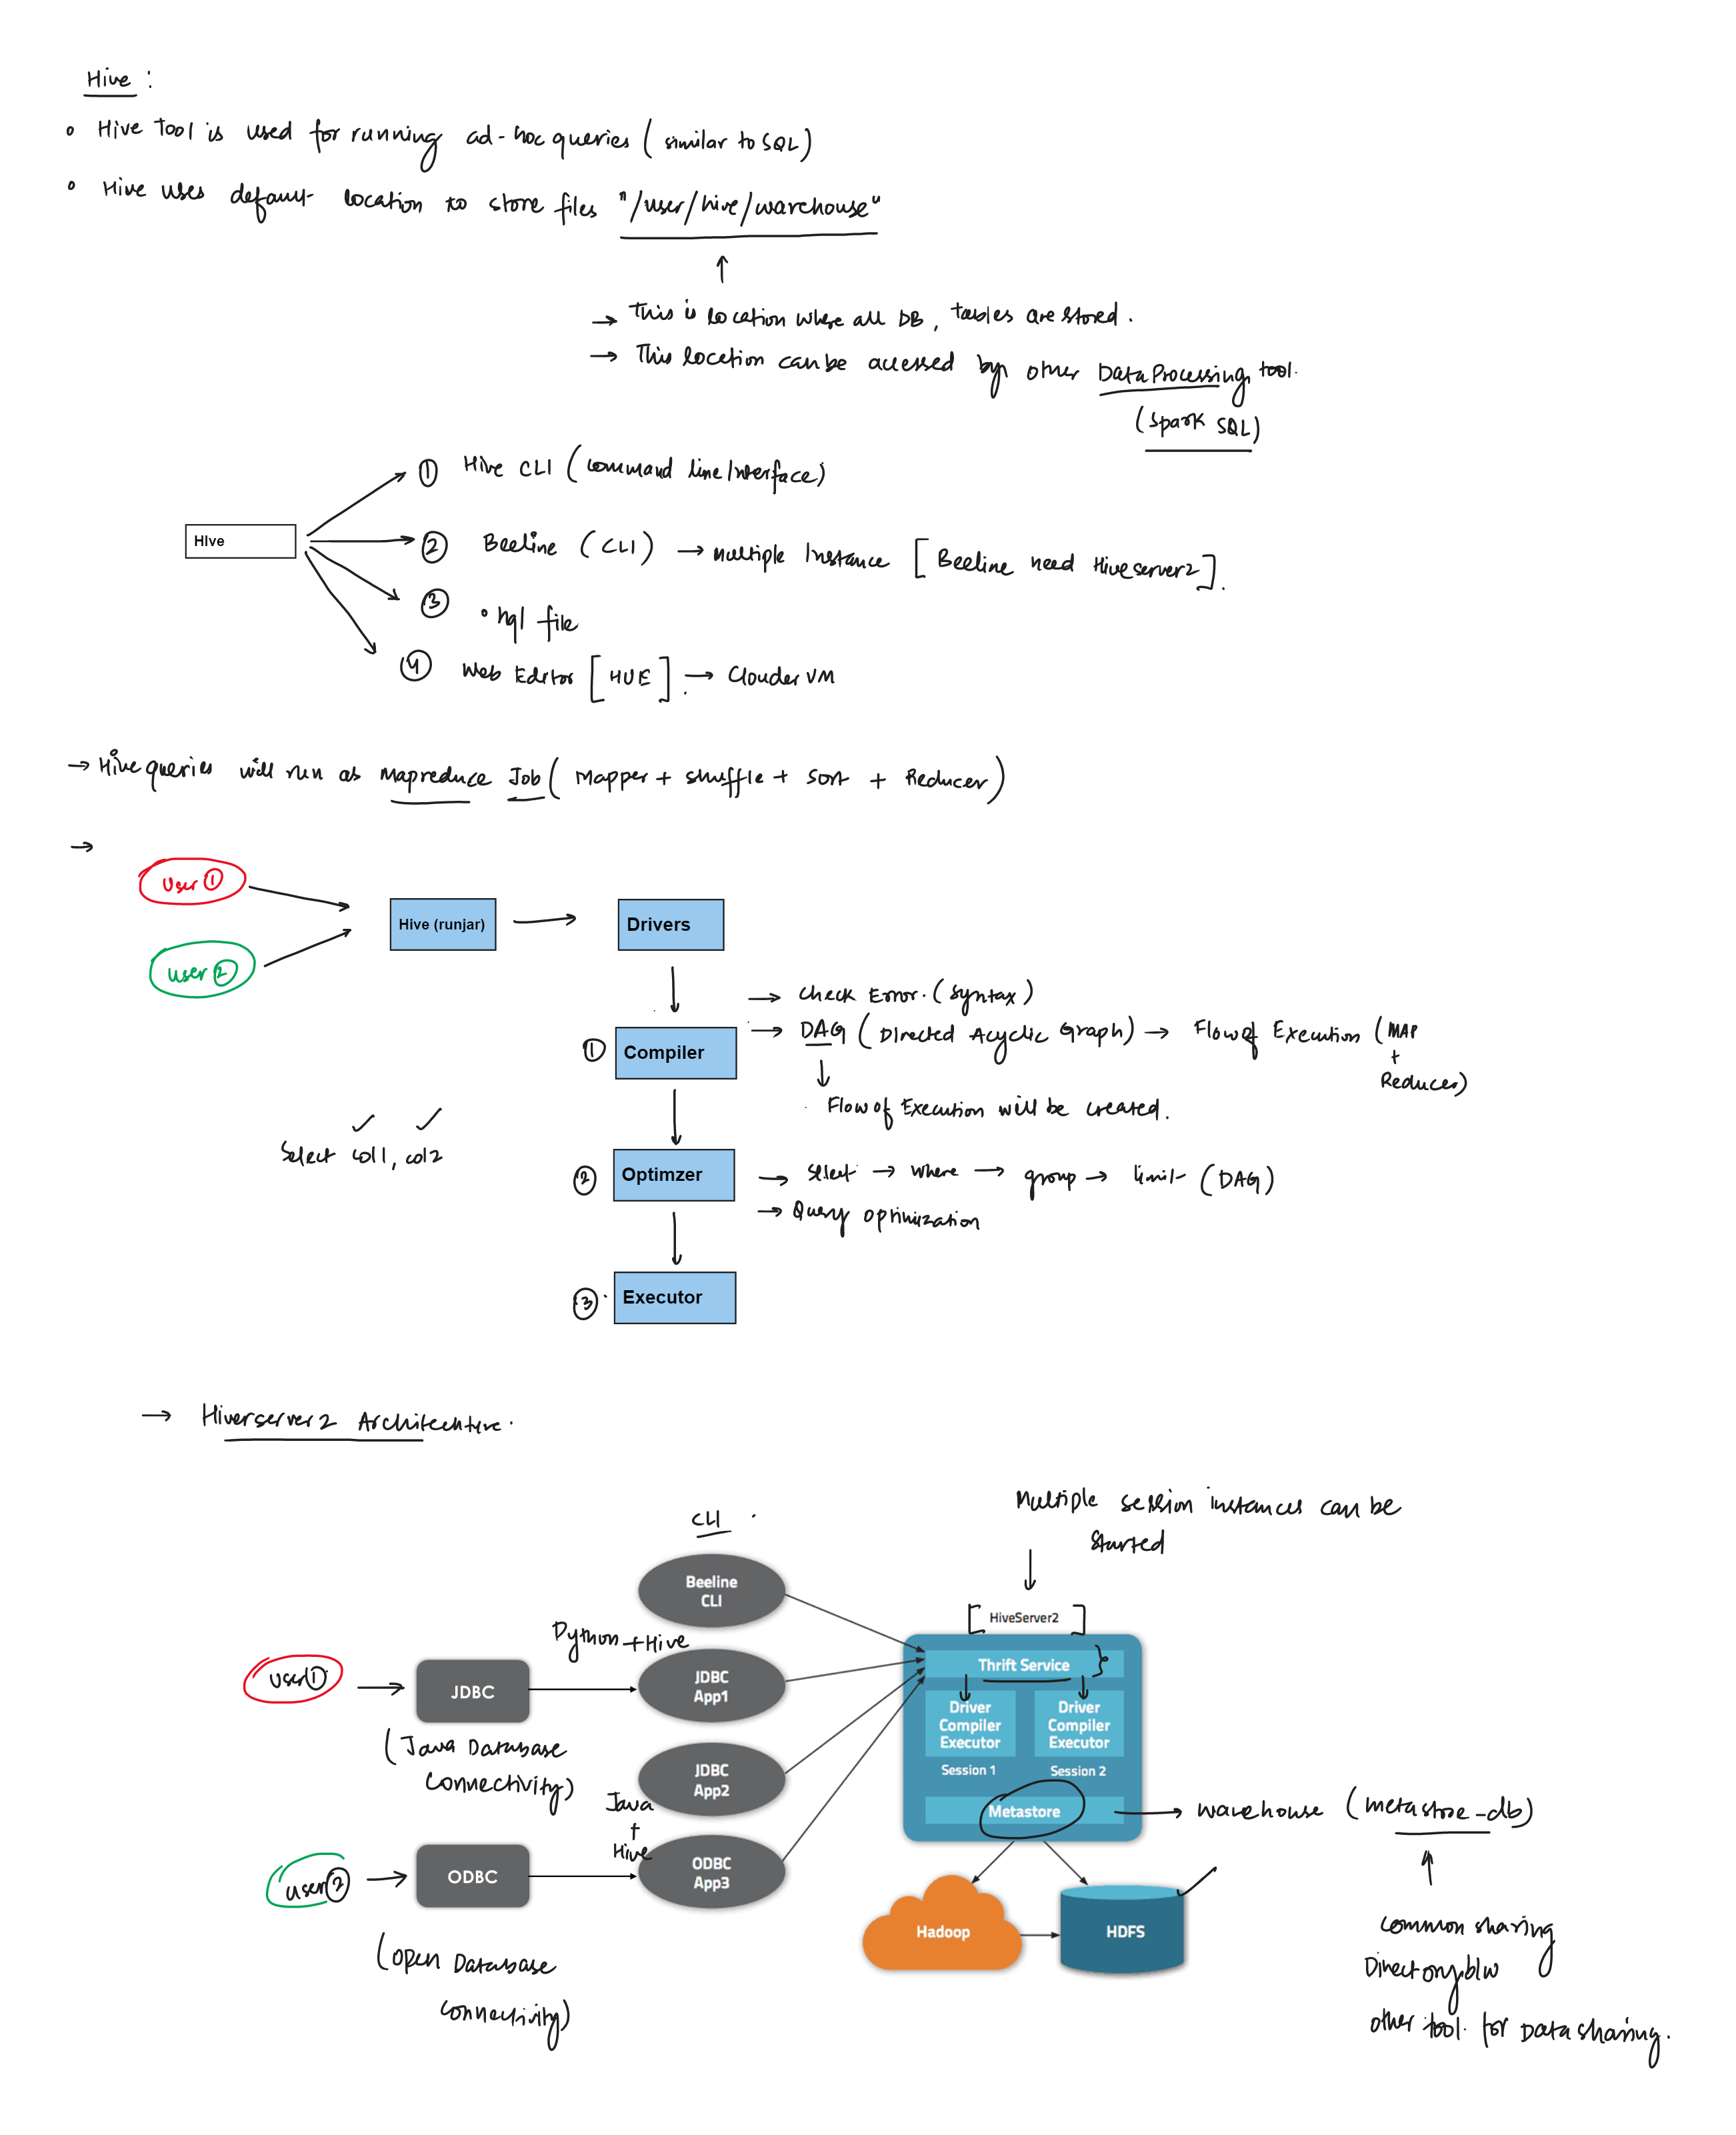 Hive :
° Hive Tool is used for running ad-hoc queries (similar to SQL)
° Hive uses default location to store files "/user/hive/warehouse"
↑
→ This is location where all DB, tables are stored.
→ This location can be accessed by other Data Processing tool.
(Spark SQL)
HIve
① Hive CLI (command line Interface)
② Beeline (CLI) → multiple Instance [Beeline need Hiveserver2].
③ °hql file
④ Web Editor [HUE]. → Clouder VM
→ Hive queries will run as Mapreduce Job (Mapper + shuffle + sort + Reducer)
→
User ①
user ②
Hive (runjar)
Drivers
① Compiler
→ Check Error. (Syntax)
→ DAG (Directed Acyclic Graph) → Flow of Execution (MAP
+
Reduces)
↓
Flow of Execution will be created.
Select col1, col2
② Optimzer
→ select → where → group → limit (DAG)
→ Query optimization
③ Executor
→ Hiverserver2 Architechture.
CLI
Multiple session instances can be
started
Beeline
CLI
[HiveServer2]
Python + Hive
user①
JDBC
JDBC
App1
Thrift Service
(Java Database
Connectivity)
Driver
Compiler
Executor
Session 1
Driver
Compiler
Executor
Session 2
JDBC
App2
Metastore
→ warehouse (metastore_db)
Java
+
Hive
user②
ODBC
ODBC
App3
(Open Database
Connectivity)
Hadoop
HDFS
common sharing
Directory b/w
other tool. for Data sharing.